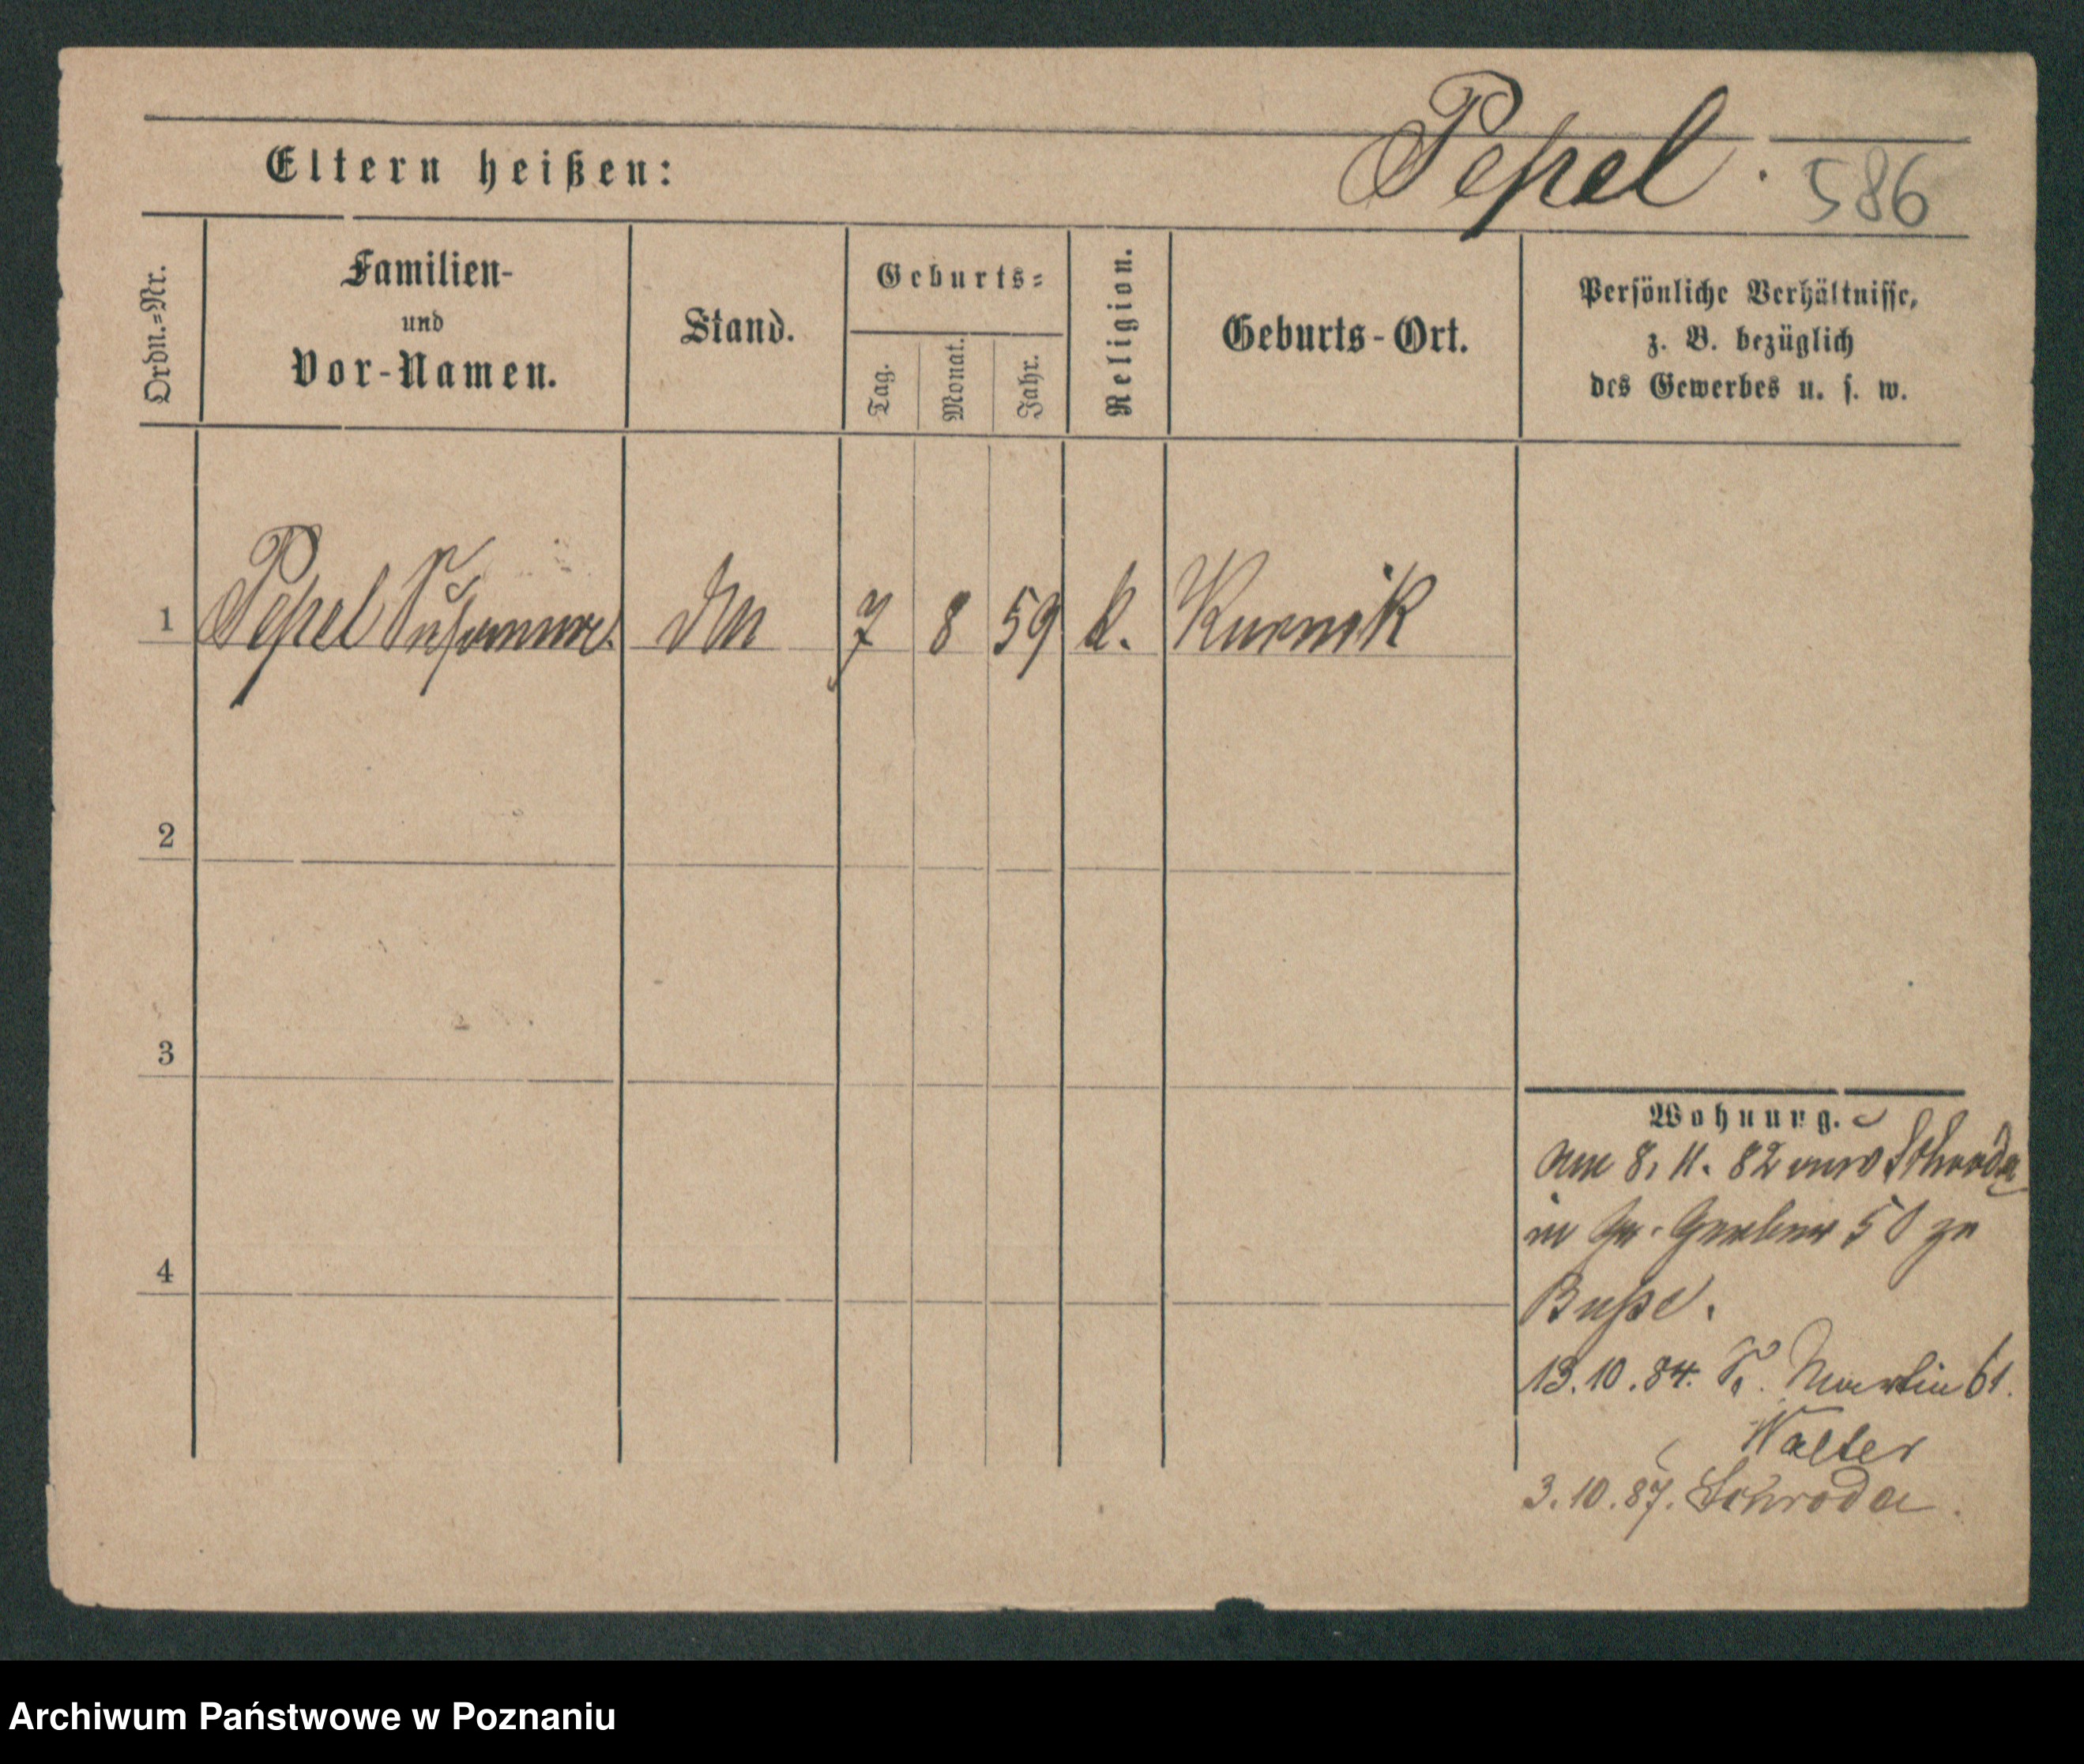 Pepel. 586
Eltern heißen:
Ordn.=Nr.
Familien-
und
Vor-Namen.
Stand.
Geburts=
Tag.
Monat.
Jahr.
Religion.
Geburts-Ort.
Persönliche Verhältnisse,
z. B. bezüglich
des Gewerbes u. s. w.
1 Pepel Susanna 7 8 59 k. Kurnik
2
3
4
Wohnung.
am 8. 11. 82 von Schroda
in Gr. Gerber 50 zu
Busse.
13.10.84. St. Martin 61.
Walter
3.10.87. Schroda
Archiwum Państwowe w Poznaniu